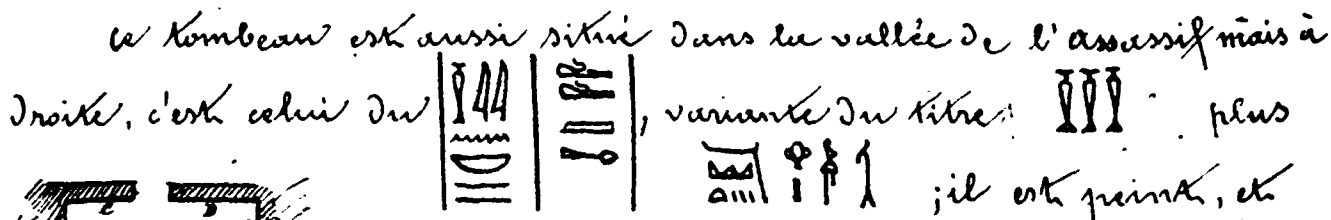 ce tombeau est aussi situé dans la vallée de l'assassif mais à
droite, c'est celui du , variante du titre: plus
; il est peint, et
C D